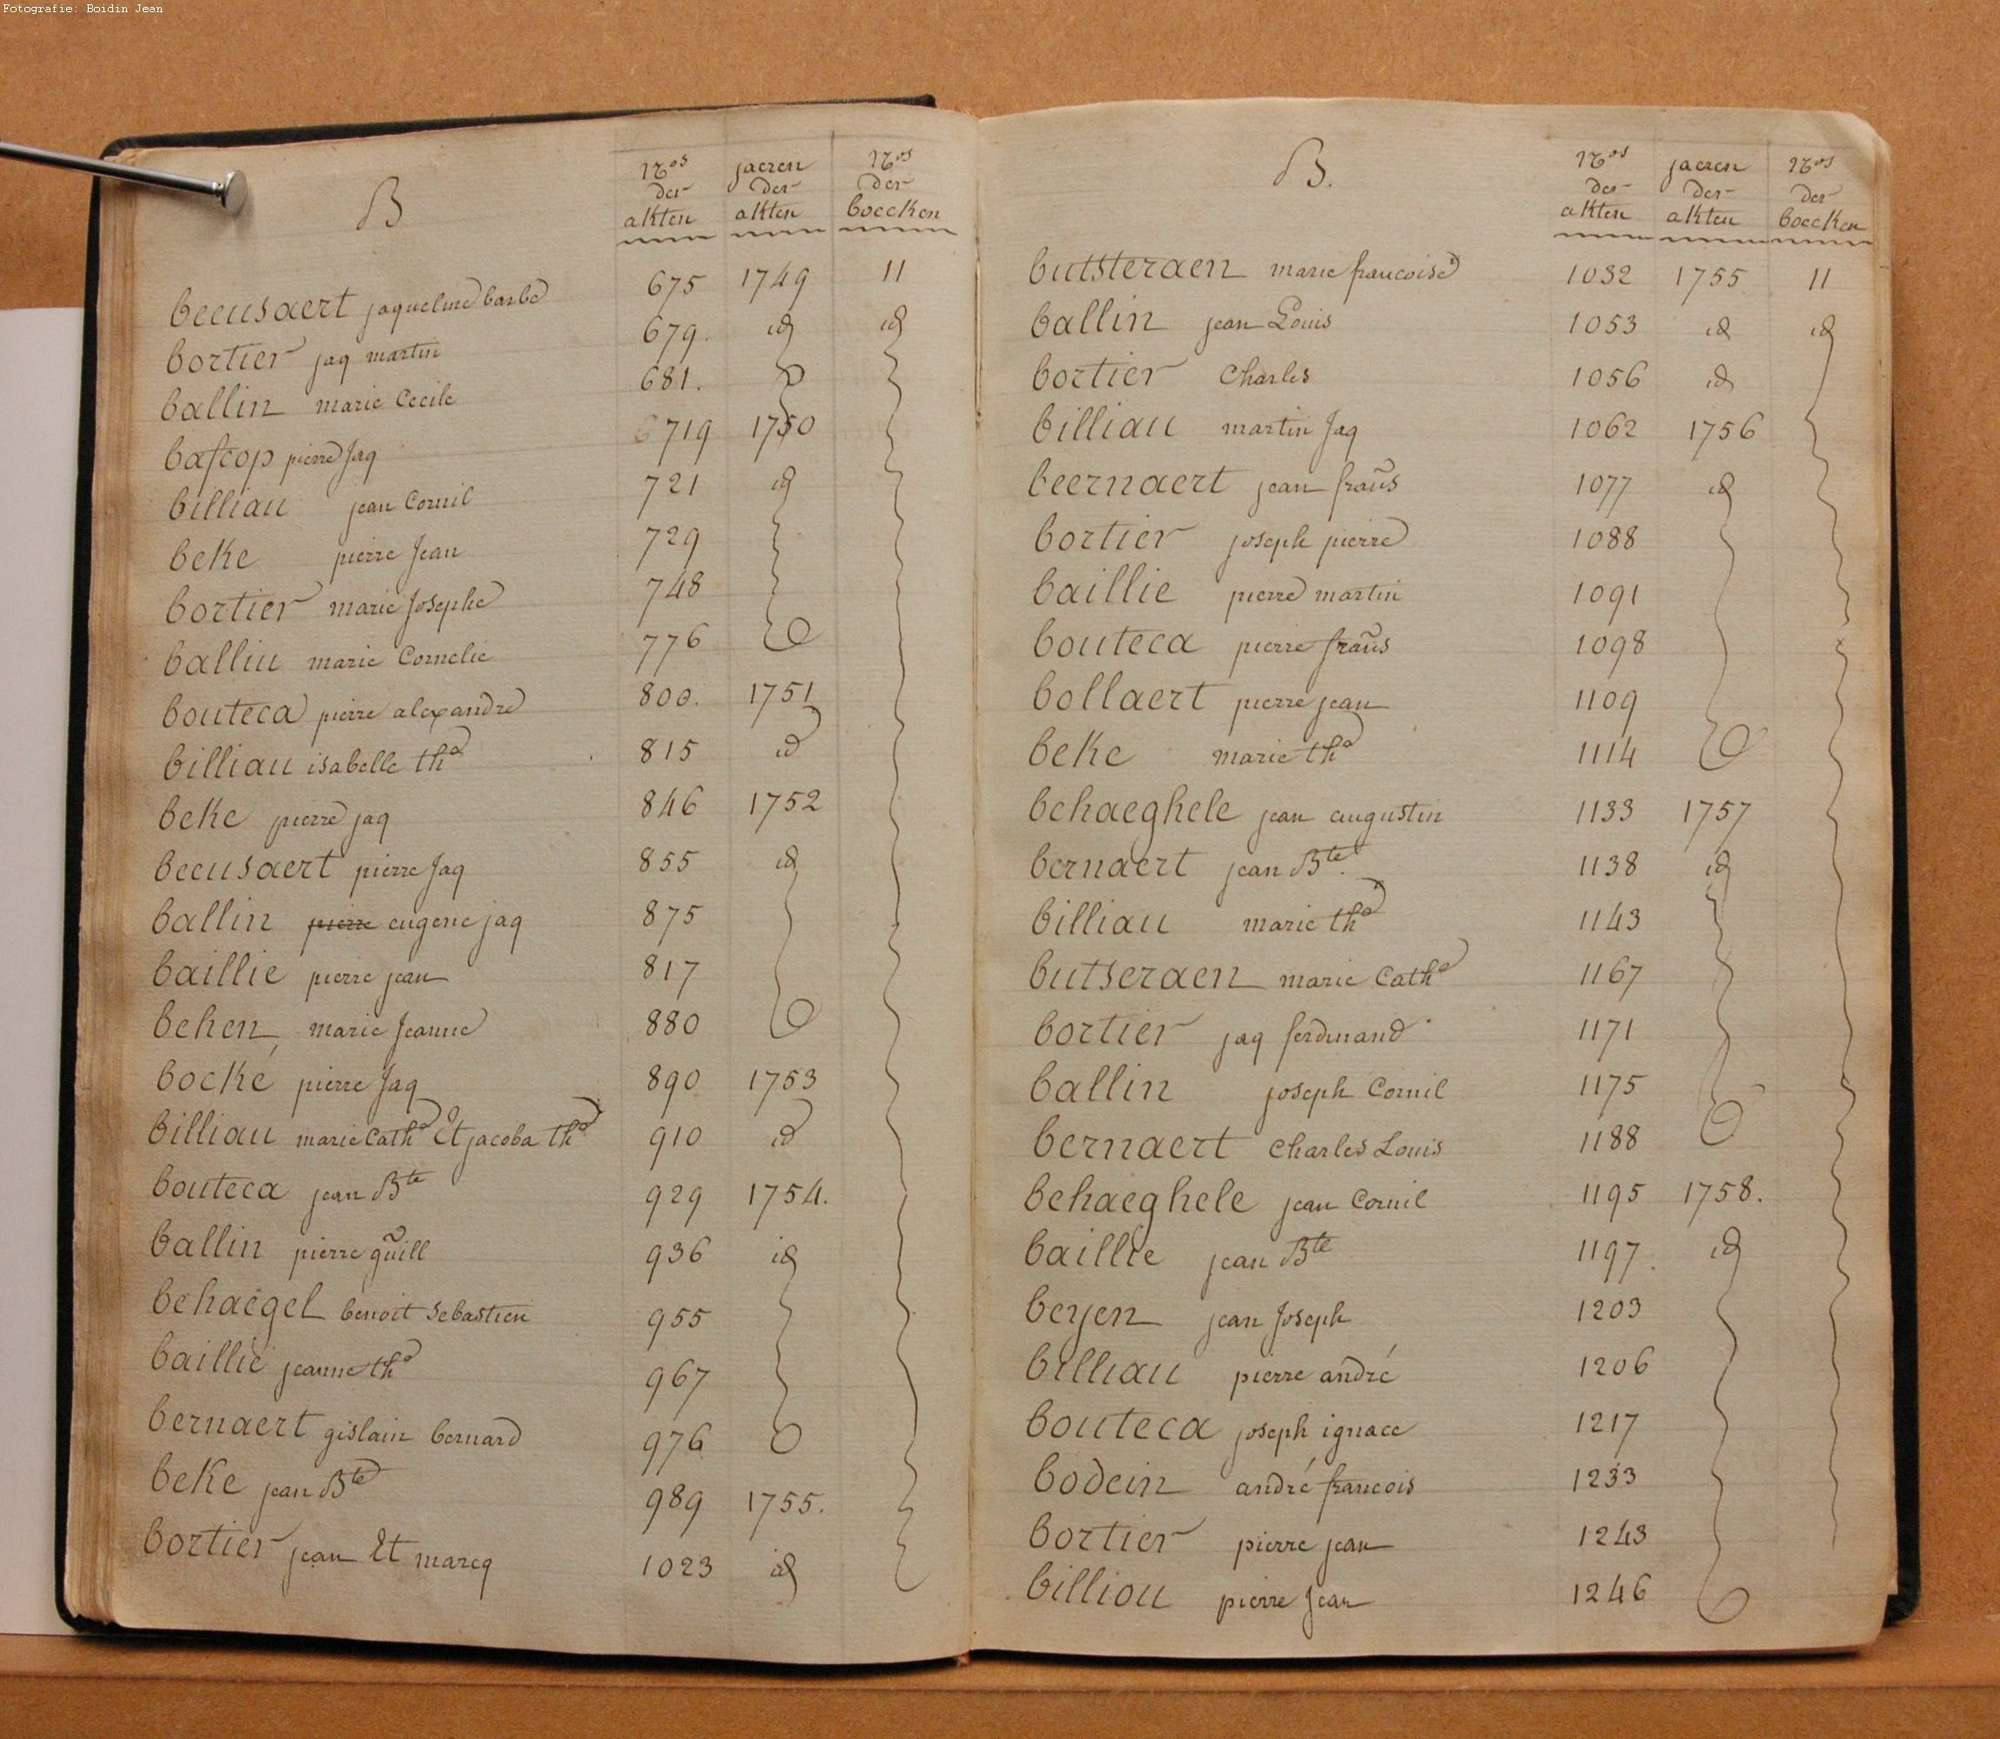 Fotografie: Boidin Jean
B
Nos der akten
jaeren der akten
Nos der boecken
beeusaert jaqueline barbe 675 1749 11
bortier jaq martin 679. id id
ballin marie Cecile 681.
bascop pierre Jaq 719 1750
billiau jean Cornil 721 id
beke pierre Jean 729
bortier marie Josephe 748
ballin marie Cornelie 776
bouteca pierre alexandre 800. 1751
billiau isabelle the 815 id
beke pierre jaq 846 1752
beeusaert pierre Jaq 855 id
ballin pierre eugene jaq 875
baillie pierre jean 817
behen marie Jeanne 880
bocké pierre Jaq 890 1753
billiau marie Cathe Et jacoba the 910 id
bouteca jean Bte 929 1754.
ballin pierre guill 936 id
behaegel benoit Sebastien 955
baillie jeanne the 967
bernaert gislain bernard 976
beke jean Bte 989 1755.
bortier jean Et marcq 1023 id
B.
Nos der akten
jaeren der akten
Nos der boecken
butsteraen marie francoise 1032 1755 11
ballin jean Louis 1053 id id
bortier Charles 1056 id
billiau martin Jaq 1062 1756
beernaert jean frañs 1077 id
bortier joseph pierre 1088
baillie pierre martin 1091
bouteca pierre frañs 1098
bollaert pierre jean 1109
beke marie the 1114
behaeghele jean augustin 1133 1757
bernaert jean Bte. 1138 id
billiau marie the 1143
butseraen marie Cathe 1167
bortier jaq ferdinand 1171
ballin joseph Cornil 1175
bernaert Charles Louis 1188
behaeghele jean Cornil 1195 1758.
baillie jean Bte 1197. id
beyen jean Joseph 1203
billiau pierre andré 1206
bouteca joseph ignace 1217
bodein andré francois 1233
bortier pierre jean 1243
billiou pierre Jean 1246